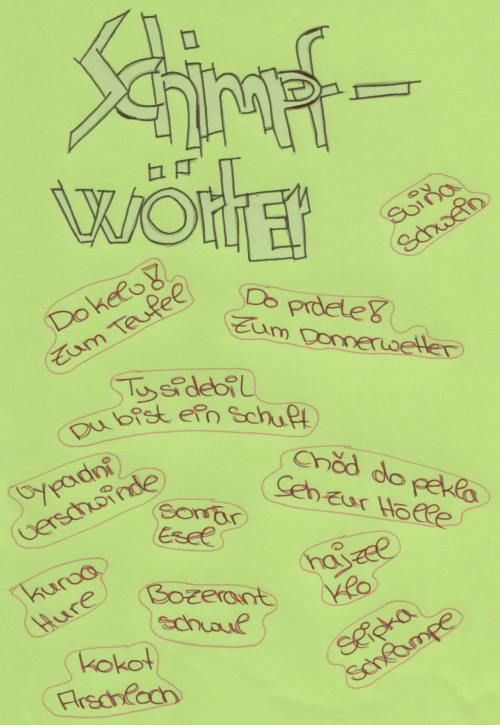 Schimpf-
wörter
Sviňa
Schwein
Do kelu!
Zum Teufel
Do prdele!
Zum Donnerwetter
Ty si debil
Du bist ein Schuft
Vypadni
verschwinde
somár
Esel
Chôd do pekla
Geh zur Hölle
hajzel
Klo
kurva
Hure
Bozerant
schwul
slipka
schlampe
kokot
Arschloch